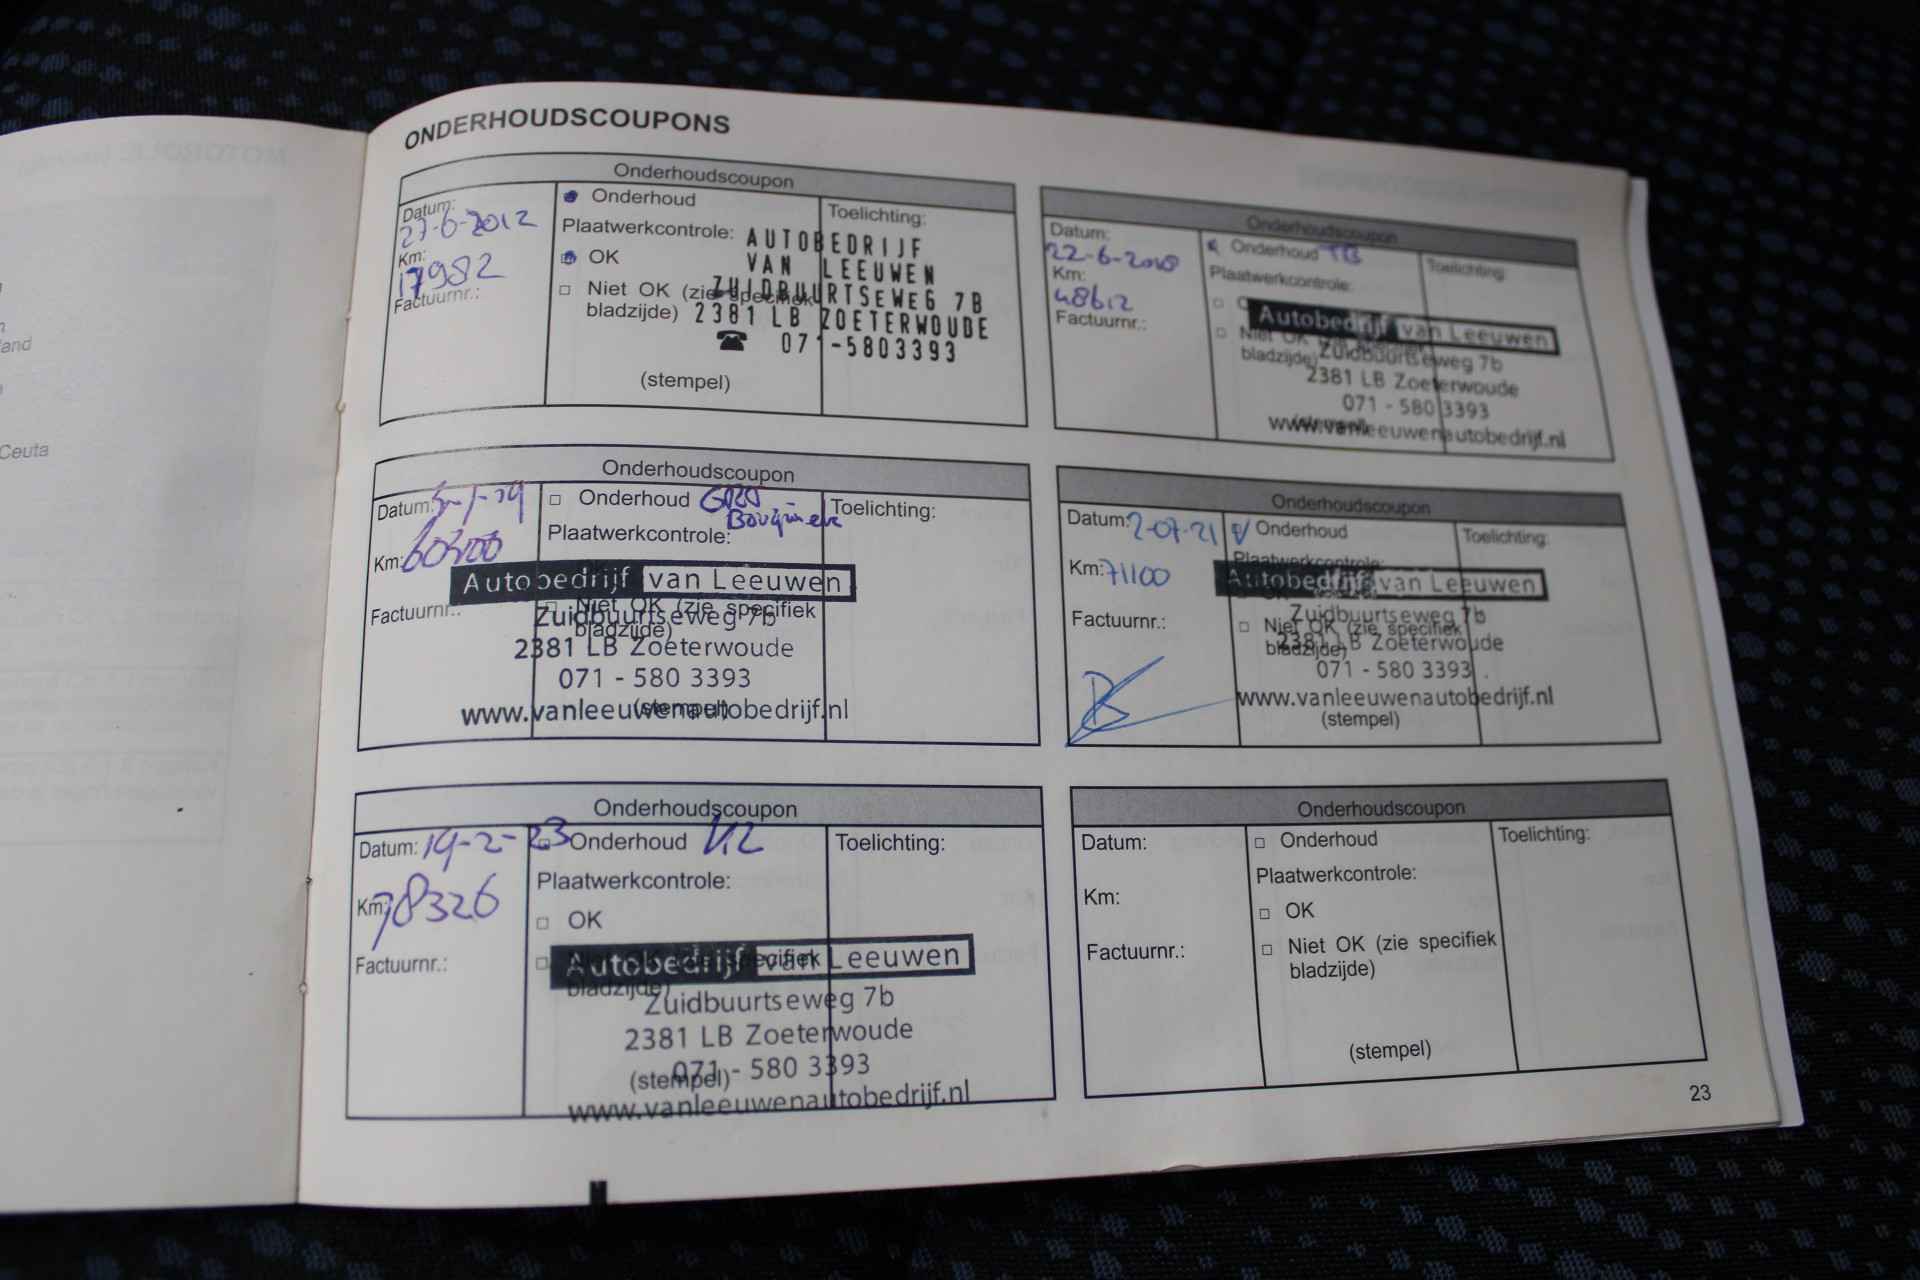 and
Ceuta
ONDERHOUDSCOUPONS
Onderhoudscoupon
Datum:
27-6-2012
Km:
17982
Factuurnr.:
Onderhoud
Plaatwerkcontrole:
OK
Niet OK (zie specifiek
bladzijde)
(stempel)
Toelichting:
AUTOBEDRIJF
VAN LEEUWEN
ZUIDBUURTSEWEG 7B
2381 LB ZOETERWOUDE
☎ 071-5803393
Onderhoudscoupon
Datum:
22-6-2018
Km:
48612
Factuurnr.:
Onderhoud
Plaatwerkcontrole:
Niet OK
bladzijde)
Toelichting:
Autobedrijf van Leeuwen
Zuidbuurtseweg 7b
2381 LB Zoeterwoude
071 - 580 3393
www.vanleeuwenautobedrijf.nl
Onderhoudscoupon
Datum:
Km: 60300
Factuurnr.:
Onderhoud
Plaatwerkcontrole:
Niet OK (zie specifiek
bladzijde)
(stempel)
Toelichting:
Autobedrijf van Leeuwen
Zuidbuurtseweg 7b
2381 LB Zoeterwoude
071 - 580 3393
www.vanleeuwenautobedrijf.nl
Onderhoudscoupon
Datum: 2-07-21
Km: 71100
Factuurnr.:
Onderhoud
Plaatwerkcontrole:
Niet OK (zie specifiek
bladzijde)
(stempel)
Toelichting:
Autobedrijf van Leeuwen
Zuidbuurtseweg 7b
2381 LB Zoeterwoude
071 - 580 3393
www.vanleeuwenautobedrijf.nl
Onderhoudscoupon
Datum: 14-2-23
Km: 78326
Factuurnr.:
Onderhoud
Plaatwerkcontrole:
OK
specifiek
bladzijde)
(stempel)
Toelichting:
Autobedrijf van Leeuwen
Zuidbuurtseweg 7b
2381 LB Zoeterwoude
071 - 580 3393
www.vanleeuwenautobedrijf.nl
Onderhoudscoupon
Datum:
Km:
Factuurnr.:
Onderhoud
Plaatwerkcontrole:
OK
Niet OK (zie specifiek
bladzijde)
(stempel)
Toelichting:
23